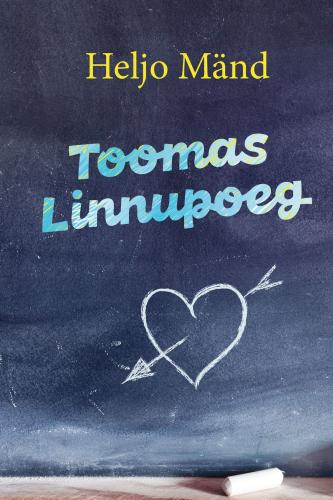 Heljo Mänd
Toomas
Linnupoeg